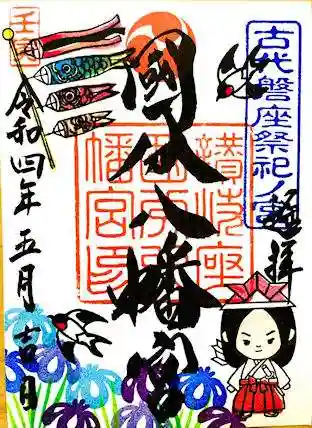 古代磐座祭祀ノ宮
奉拝
國分八幡宮
讃岐座
國分八
幡宮印
壬寅
令和四年五月吉日